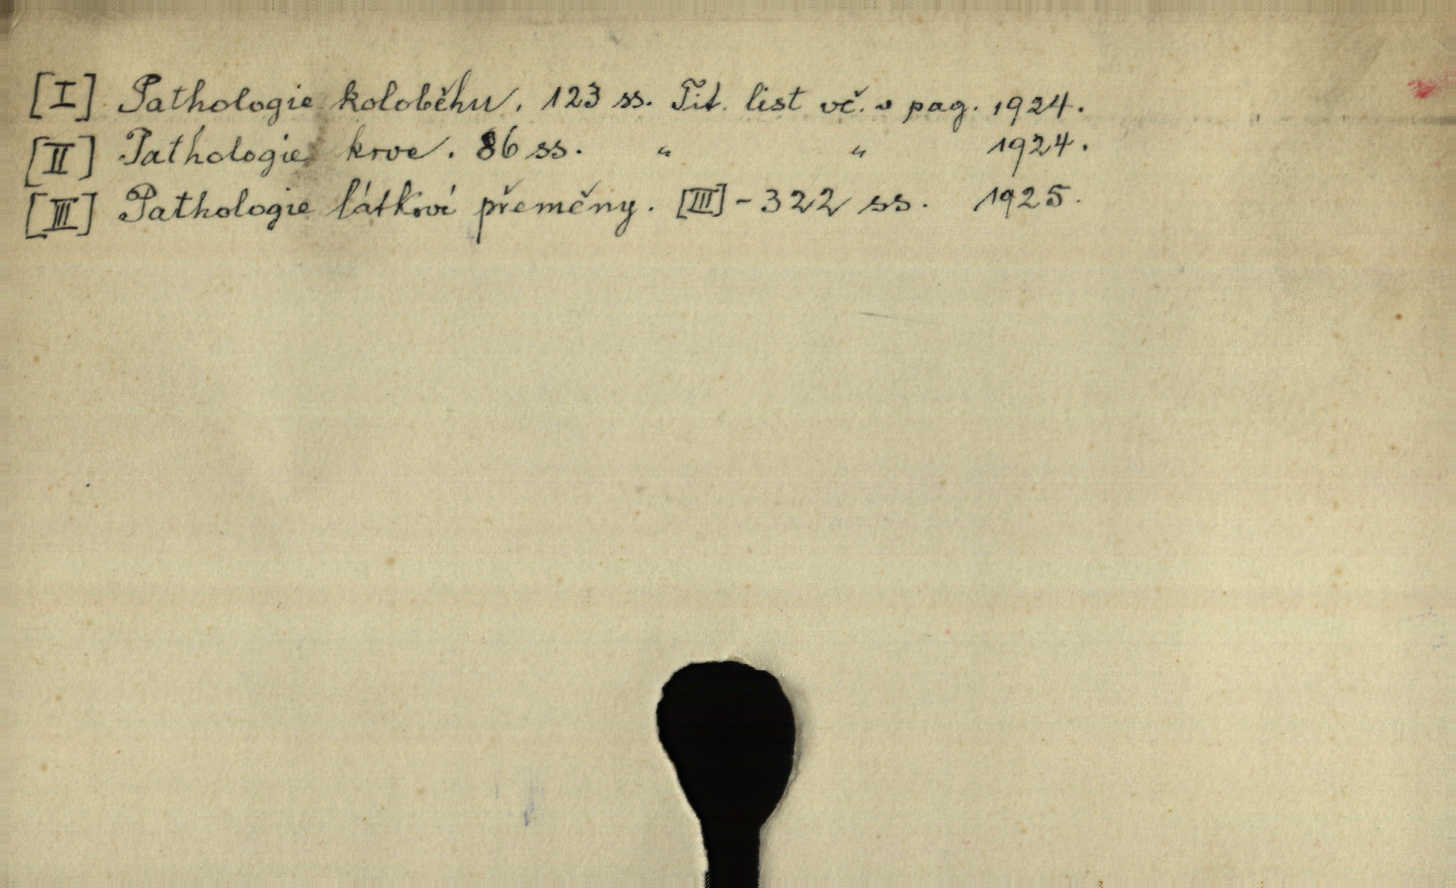 [I] Pathologie koloběhu. 123 ss. Tit. list vč. v pag. 1924.
[II] Pathologie krve. 86 ss. " " 1924.
[III] Pathologie látkové přeměny. [III] - 322 ss. 1925.